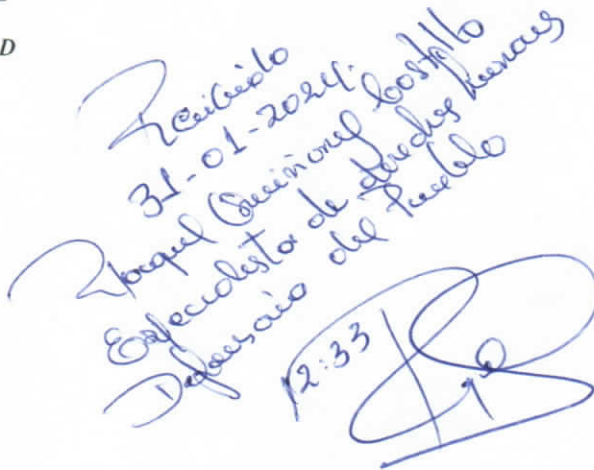 D
Recibido
31-01-2024.
Raquel Quiñonez Castillo
Especialista de derechos humanos
Defensoría del Pueblo
12:33